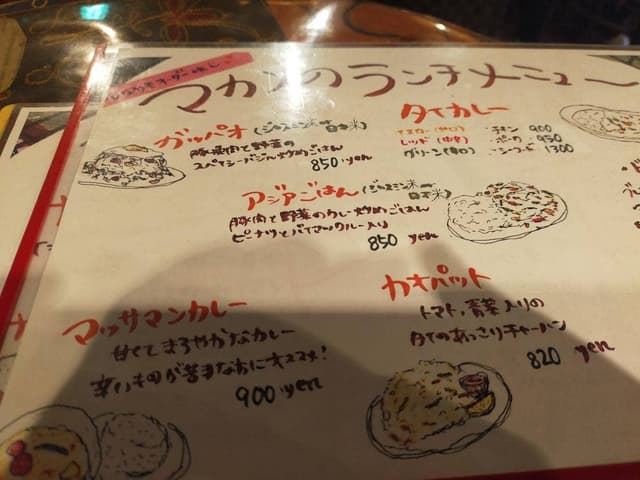 マカンのランチメニュー
ガッパオ (ジャスミン米or日本米)
豚挽肉と野菜の
スパイシーバジル炒めごはん
850 yen
タイカレー
イエロー(甘口) ・チキン 900
レッド(中辛) ・ポーク 950
グリーン(辛口) ・シーフード 1300
アジアごはん (ジャスミン米or日本米)
豚肉と野菜のカレー炒めごはん
ピーナツとバイマックルー入り
850 yen
カオパット
トマト、青菜入りの
タイのあっさりチャーハン
820 yen
マッサマンカレー
甘くてまろやかなカレー
辛いものが苦手な方にオススメ!
900 yen